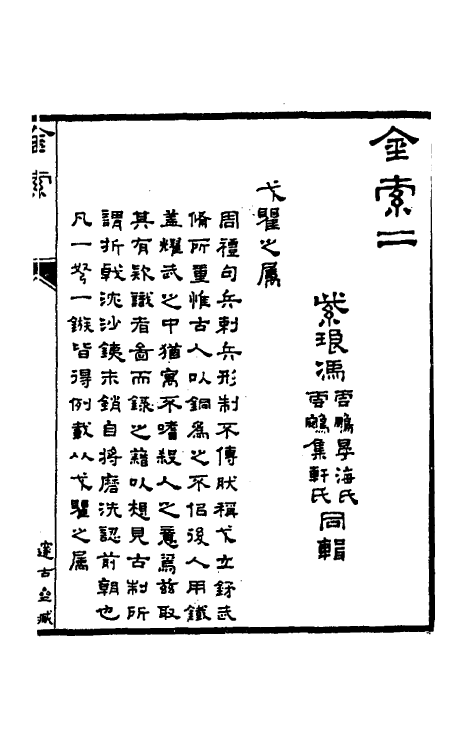 金索二
紫琅馮雲鵬晏海氏雲鵷集軒氏同輯
戈瞿之属
周禮句兵刺兵形制不傳肰稱戈立鋝武
脩所重惟古人以銅為之不侣後人用鐵
蓋燿武之中猶寓不嗜殺人之意焉兹取
其有欵識者啚而錄之藉以想見古制所
謂折戟沈沙鐵未銷自將磨洗認前朝也
凡一弩一鏃皆得例載入戈瞿之属
金索
邃古盦臧